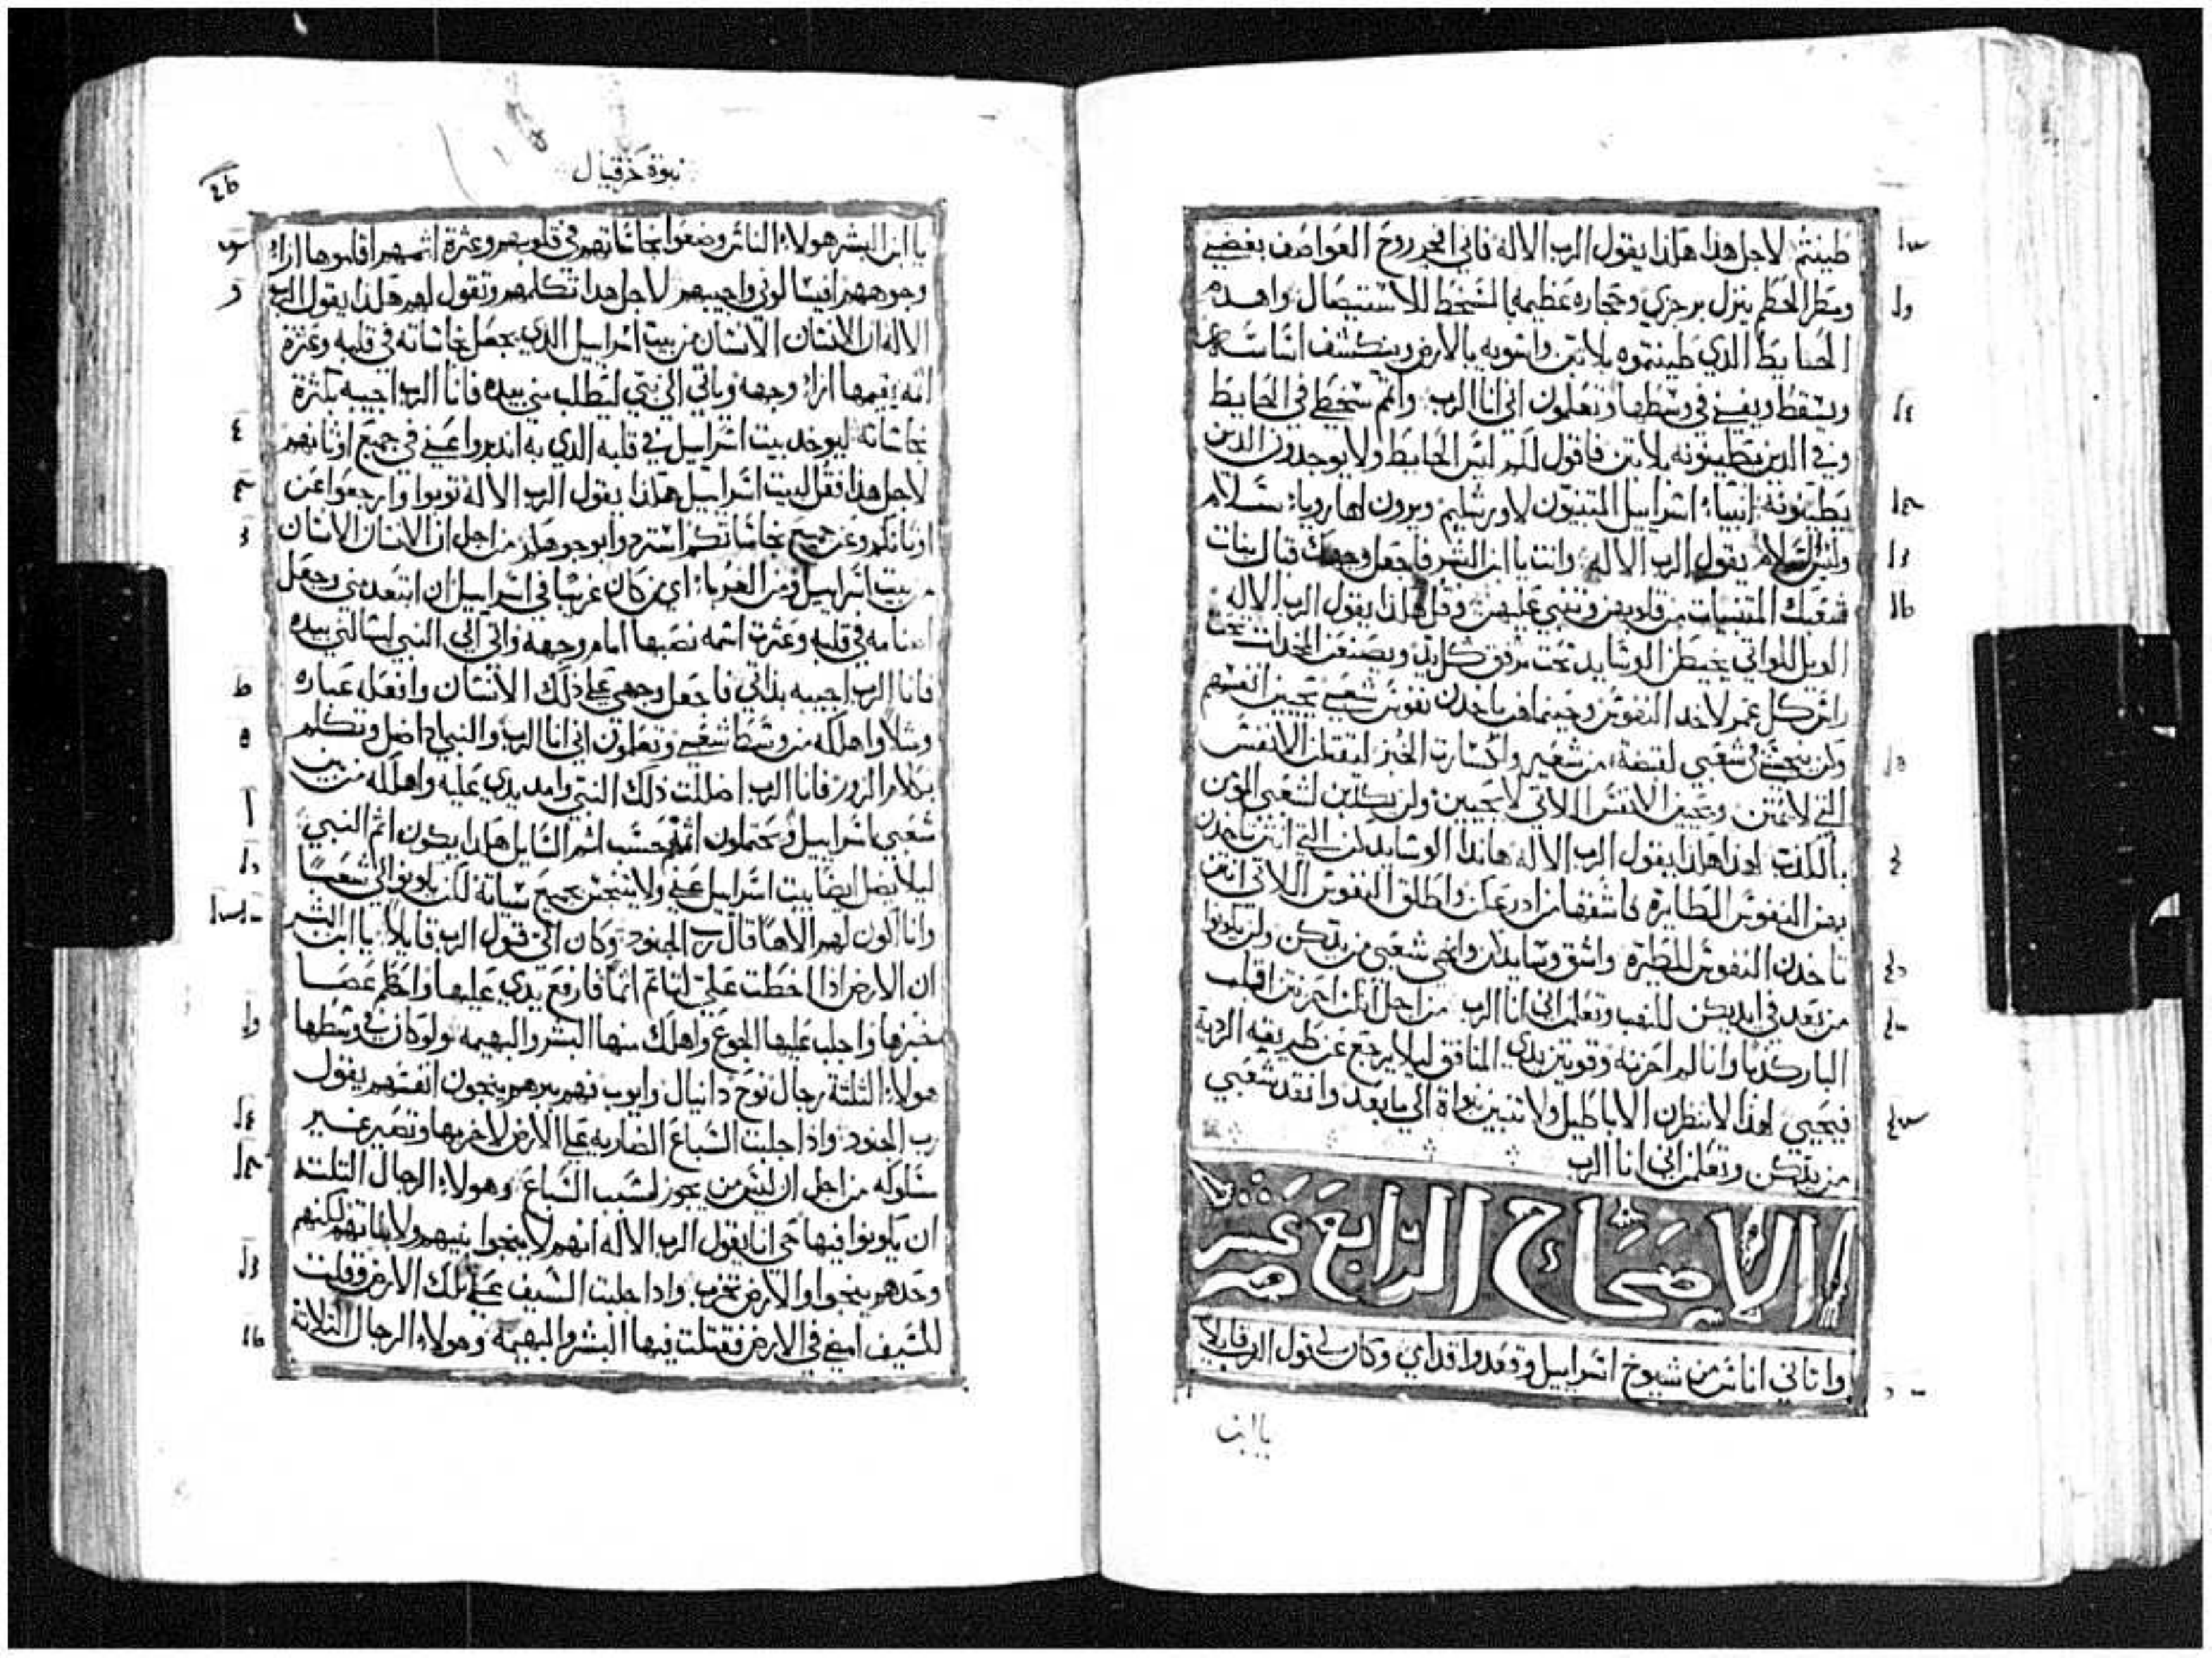 طينتم لاجل هذا هكذا يقول الرب الاله فاني افجر روح العواصف بغضبي
ومطر الحطم ينزل برجزي وحجاره عظيمه بالسخط للاستيصال واهدم
الحايط الدي طينتموه بلا تبن واسويه بالارض وينكشف اساسه
ويسقط ويفني في وسطها وتعلمون اني انا الرب واتم سخطي في الحايط
وفي الدين يطينونه بلا تبن فاقول لكم ليس الحايط ولا يوجدون الدين
يطينونه انبياء اسراييل المتنبون لاورشليم ويرون لها روياء سلام
وليس السلام يقول الرب الاله وانت يا ابن البشر فاجعل وجهك قبال بنات
شعبك المتنبيات من قلوبهن وتنبي عليهن وقل هكذا يقول الرب الاله
الويل للواتي يخيطن الوسايد تحت مرفق كل يد ويصنعن المخدات تحت
راس كل عمر لاخد النفوس وحينما هن ياخدن نفوس شعبي تحيين انفسهم
ولن ينجسني شعبي لقبضة من شعير ولكسارت الخبز ليقتلن الانفس
التي لا تمتن ويحيين الانفس اللاتي لا تحيين ولن يكدبن لشعبي المومن
بالكدب لهذا هكذا يقول الرب الاله هاندا الوسايدكن التي انتن تاخدن
بهن النفوس الطايرة فاشققها من ادرعكن واطلق النفوس اللاتي انتن
تاخدن النفوس للطيرة واشق وسايدكن وانجي شعبي من يدكن ولن يكونوا
من بعد في ايديكن للنهب وتعلمن اني انا الرب من اجل انكن احزنتن قلب
البار كدبا وانا لم احزنه وقويتن يدي المنافق ليلا يرجع عن طريقه الردية
فيحيي لهذا لا تنظرن الاباطيل ولا تتنبين نبواة الي ما بعد وانقد شعبي
من يدكن وتعلمن اني انا الرب
الاصحاح الرابع عشر
واتاني اناس من شيوخ اسراييل وقعدوا قدامي وكان لي قول الرب قايلا
يا ابن
نبوة حزقيال
يا ابن البشر هولاء الناس وضعوا نجاساتهم في قلوبهم وعثرة اثمهم اقاموها ازاء
وجوههم افيسالوني واجيبهم لاجل هدا تكلمهم وتقول لهم هكذا يقول الرب
الاله ان الانسان الانسان من بيت اسراييل الدي يجعل نجاساته في قلبه وعثرة
اثمه يقيمها ازاء وجهه وياتي الي نبي ليطلب مني بيده فانا الرب اجيبه بكثرة
نجاساته ليوخد بيت اسراييل في قلبه الدي به اندبروا عني في جميع اوثانهم
لاجل هذا فقل لبيت اسراييل هكذا يقول الرب الاله توبوا وارجعوا عن
اوثانكم وعن جميع نجاساتكم استردوا بوجوهكم من اجل ان الانسان الانسان
من بيت اسراييل ومن الغرباء اي من كان غريبا في اسراييل ان ابتعد مني وجعل
اصنامه في قلبه وعثرت اثمه نصبها امام وجهه واتي الي النبي ليسالني بيده
فانا الرب اجيبه بداتي فاجعل وجهي علي ذلك الانسان وافعله عباره
ومثلا واهلكه من وسط شعبي وتعلمون اني انا الرب والنبي ادا ضل وتكلم
بكلام الزور فانا الرب اضللت ذلك النبي وامد يدي عليه واهلكه من بين
شعبي اسراييل ويحتملون اثمهم حسب اثم السايل هكدا يكون اثم النبي
ليلا يضل ايضا بيت اسراييل عني ولا يتنجس بجميع سياته لكن يكونوا لي شعبا
وانا اكون لهم الاها قال رب الجنود وكان الي قول الرب قايلا يا ابن البشر
ان الارض اذا اخطت علي لتاتم اثما فارفع يدي عليها واحطم عصا
خبزها واجلب عليها الجوع واهلك منها البشر والبهيمه ولو كان في وسطها
هولاء الثلثة رجال نوح دانيال وايوب فهم ببرهم ينجون انفسهم يقول
رب الجنود واذا جلبت السباع الضاريه علي الارض لاخربها وتصير غير
سلوكه من اجل ان ليس من يجوز لسبب السباع وهولاء الرجال التلته
ان يكونوا فيها حي انا يقول الرب الاله انهم لا ينجوا بنيهم ولا بناتهم لكنهم
وحدهم ينجوا والارض تخرب وادا جلبت السيف علي تلك الارض وقلت
للسيف امضي في الارض فقتلت فيها البشر والبهيمة وهولاء الرجال التلاتة